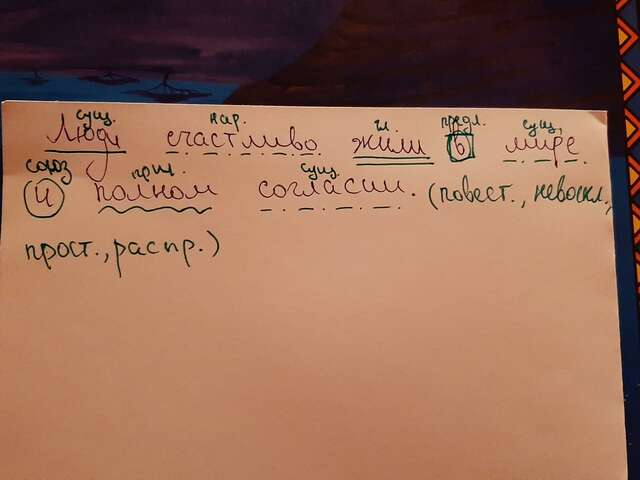 сущ. нар. гл предл. сущ.
Люди счастливо жили в мире
союз прил. сущ.
и полном согласии. (повест., невоскл.,
прост., распр.)